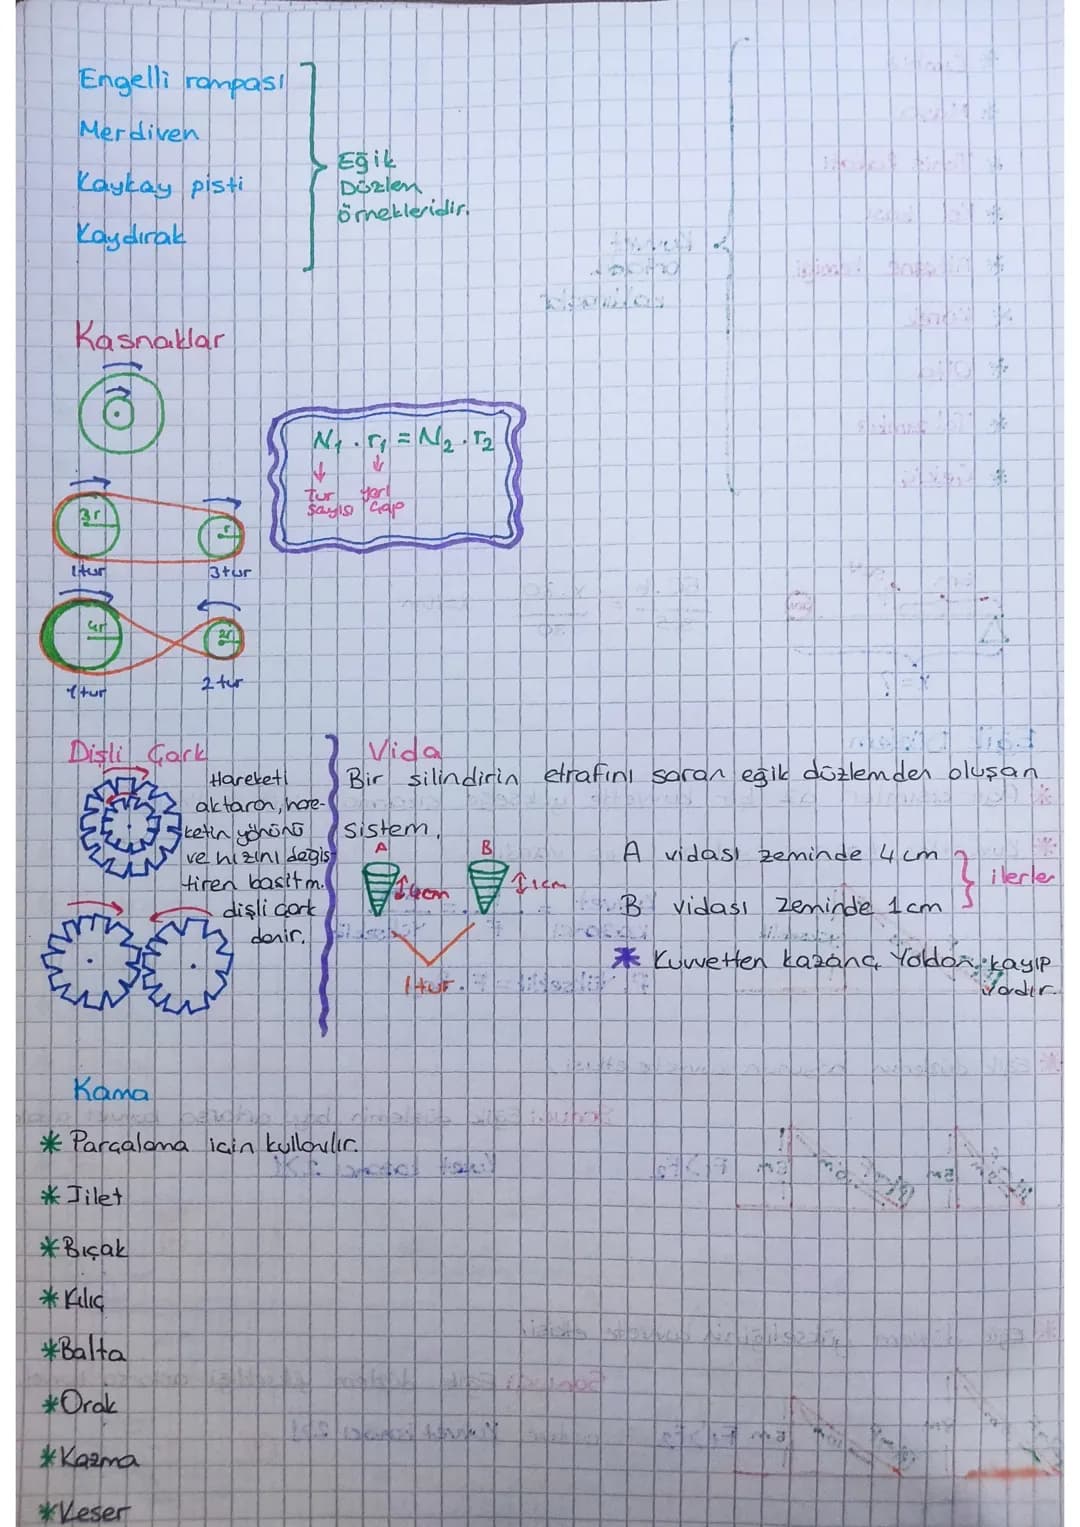 Engelli rampası
Merdiven
Kaykay pisti
Kaydırak
Eğik
Düzlem
örnekleridir.
Kasnaklar
N1 . r1 = N2 . r2
Tur
sayısı
Yarı
Çap
3r
r
1tur
3tur
4r
2r
1tur
2tur
Dişli Çark
Hareketi
aktaran, hare-
ketin yönünü
ve hızını değiş-
tiren basit m.
dişli çark
denir.
Vida
Bir silindirin etrafını saran eğik düzlemden oluşan
sistem.
A
B
4cm
1cm
1tur
A vidası zeminde 4cm
B vidası zeminde 1cm
ilerler
* Kuvvetten kazanç, Yoldan kayıp
vardır.
Kama
* Parçalama için kullanılır.
* Jilet
* Bıçak
* Kılıç
* Balta
* Orak
* Kazma
* Keser